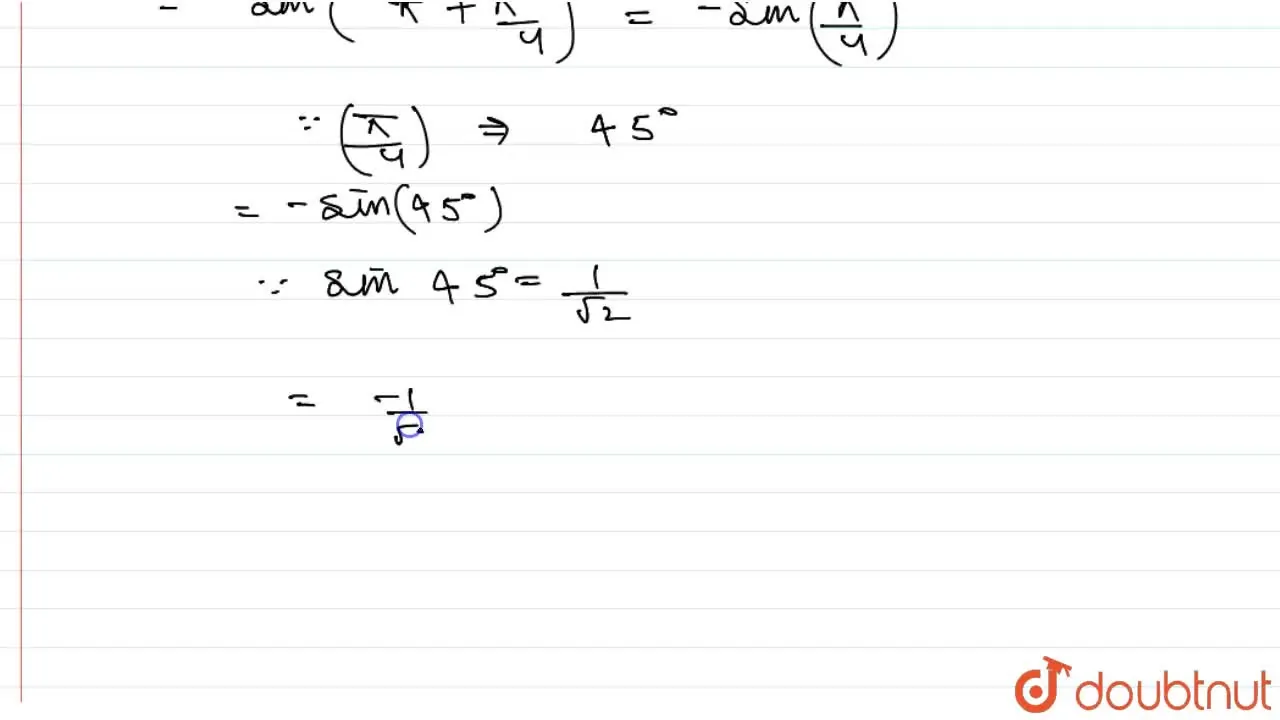 = sin(π + π/4) = -sin(π/4)
∵ (π/4) ⇒ 45°
= -sin(45°)
∵ sin 45° = 1/√2
= -1/√
doubtnut